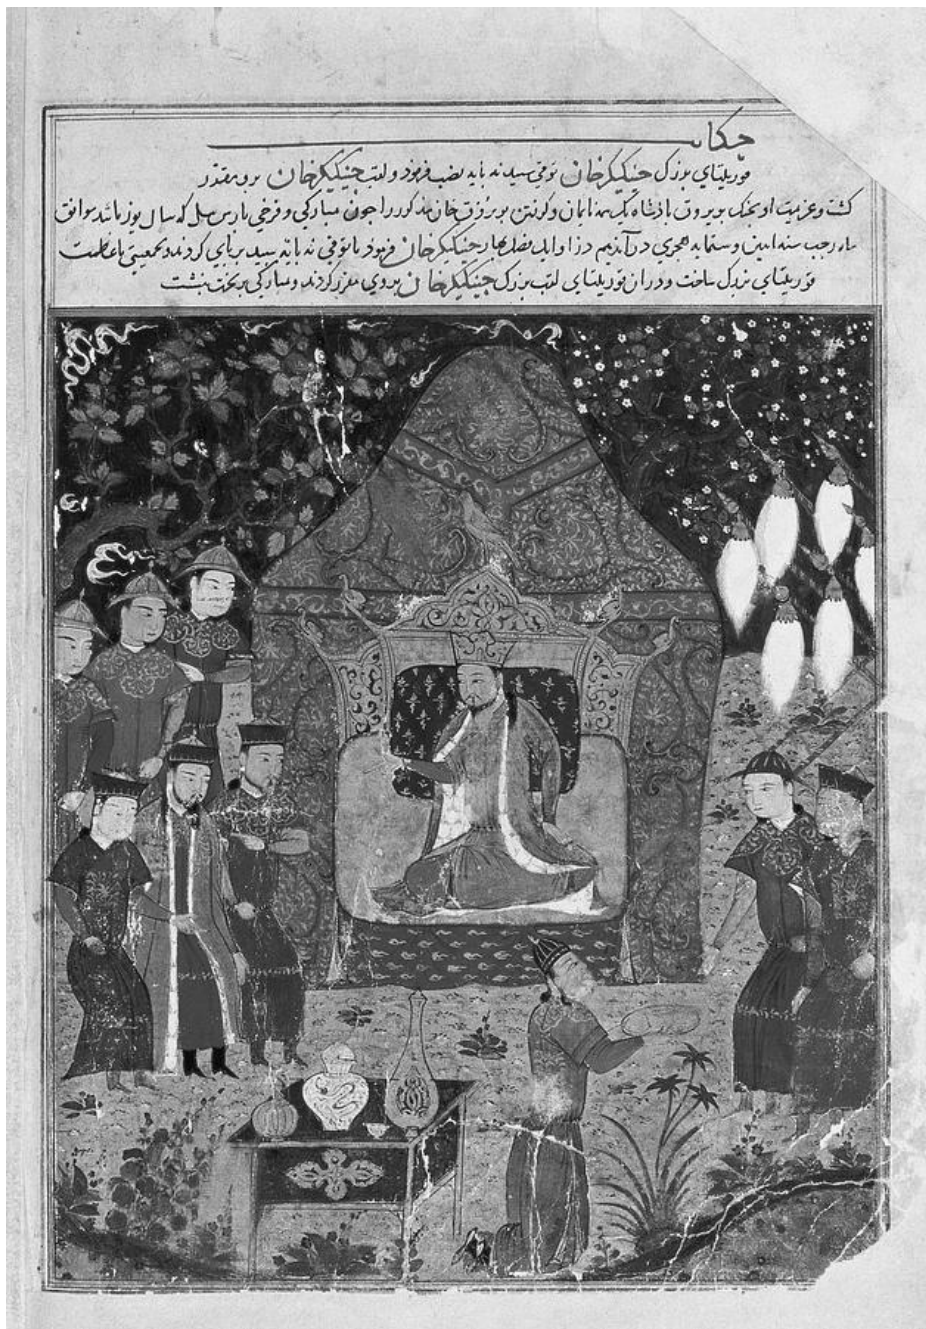 حکایت
قوریلتای بزرك جینکیکزخان توقی سپید نه پایه نصب فرمود و لقب جینکیکزخان برو مقرر
کشت و عزیمت او بجنک بویروق پادشاه نایمان و کرفتن بویروق خان مذکور را جون مبارکی و فرخی بارس ییل که سال یوز باشد موافق
ماه رجب سنه اثنین و ستمایه هجری در آمد هم در اوایل فصل بهار جینکیکزخان فرمود تا توقی نه پایه سپید بر پای کردند و بجمعیتی با عظمت
قوریلتای بزرك ساخت و در ان قوریلتای لقب بزرك جینکیکزخان بروی مقرر کردند و مبارکی بر تخت بنشست